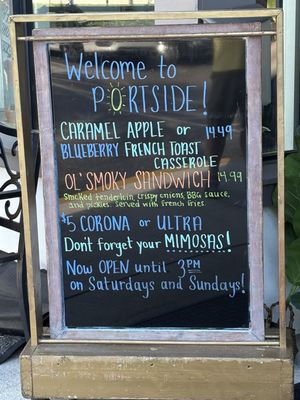 Welcome to
PORTSIDE!
CARAMEL APPLE or 14.49
BLUEBERRY FRENCH TOAST
CASSEROLE
OL' SMOKY SANDWICH 14.99
Smoked tenderloin, crispy onions, BBQ sauce,
and pickles. Served with french fries.
$5 CORONA or ULTRA
Don't forget your MIMOSAS!
NOW OPEN until 3PM
on Saturdays and Sundays!